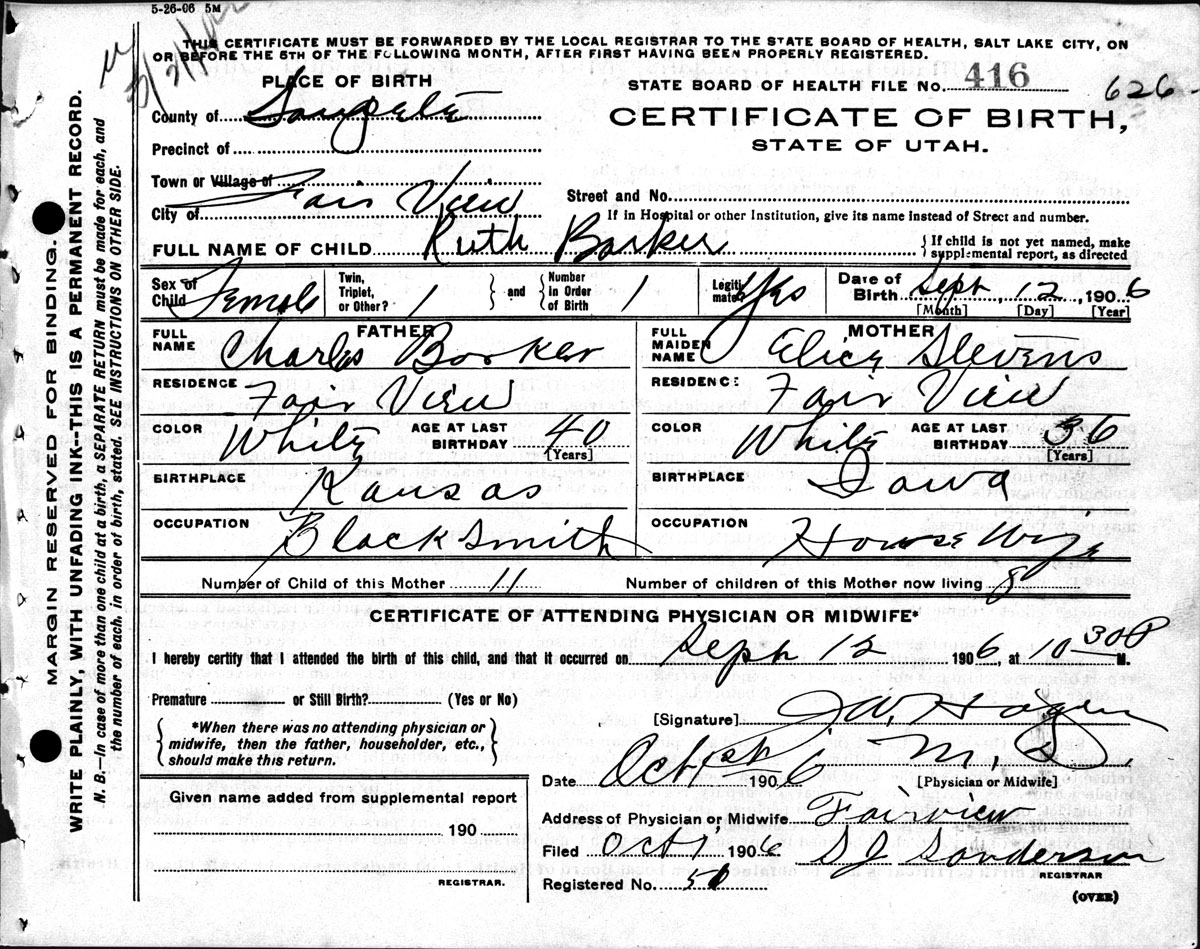 5-26-06 5M
THIS CERTIFICATE MUST BE FORWARDED BY THE LOCAL REGISTRAR TO THE STATE BOARD OF HEALTH, SALT LAKE CITY, ON
OR BEFORE THE 5TH OF THE FOLLOWING MONTH, AFTER FIRST HAVING BEEN PROPERLY REGISTERED.
MARGIN RESERVED FOR BINDING.
WRITE PLAINLY, WITH UNFADING INK--THIS IS A PERMANENT RECORD.
N. B.—In case of more than one child at a birth, a SEPARATE RETURN must be made for each, and
the number of each, in order of birth, stated. SEE INSTRUCTIONS ON OTHER SIDE.
PLACE OF BIRTH
STATE BOARD OF HEALTH FILE NO. 416 626
County of Sanpete
CERTIFICATE OF BIRTH,
STATE OF UTAH.
Precinct of
Town or Village of
City of Fair View
Street and No.
If in Hospital or other Institution, give its name instead of Street and number.
FULL NAME OF CHILD Ruth Barker
If child is not yet named, make
supplemental report, as directed
Sex of Child Female Twin, Triplet, or Other? 1 and Number in Order of Birth 1 Legitimate? Yes Date of Birth Sept, 12, 1906
[Month] [Day] [Year]
FATHER
FULL NAME Charles Barker
RESIDENCE Fair View
COLOR White AGE AT LAST BIRTHDAY 40
[Years]
BIRTHPLACE Kansas
OCCUPATION Black Smith
MOTHER
FULL MAIDEN NAME Elice Stevens
RESIDENCE: Fair View
COLOR White AGE AT LAST BIRTHDAY 36
[Years]
BIRTHPLACE Iowa
OCCUPATION House Wife
Number of Child of this Mother 11 Number of children of this Mother now living 8
CERTIFICATE OF ATTENDING PHYSICIAN OR MIDWIFE*
I hereby certify that I attended the birth of this child, and that it occurred on Seph 12 1906, at 10 30 P M.
Premature or Still Birth? (Yes or No)
*When there was no attending physician or
midwife, then the father, householder, etc.,
should make this return.
[Signature] J W. Hagen
M, D,
Date Oct 1st 1906 [Physician or Midwife]
Given name added from supplemental report
190
REGISTRAR.
Address of Physician, or Midwife Fairview
Filed Oct 1, 1906 S J Sanderson
REGISTRAR
Registered No. 51
(OVER)